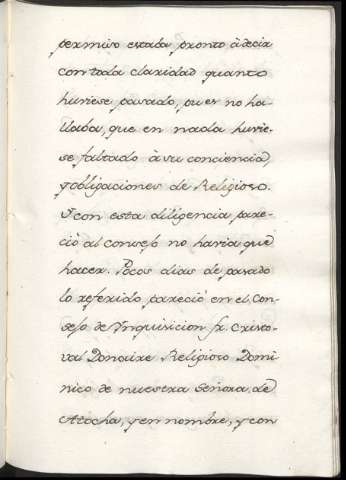 permiso estaba pronto à decir
con toda claridad quanto
huviese pasado, pues no ha-
llaba, que en nada huvie-
se faltado à su conciencia,
y obligaciones de Religioso.
Y con esta diligencia pare-
ciò al consejo no havia que
hacer. Pocos dias de pasado
lo referido pareciò en el Con-
sejo de Ynquisicion fr. Cristo-
val Donaire Religioso Domi-
nico de nuestra Señora de
Atocha, y en nombre, y con